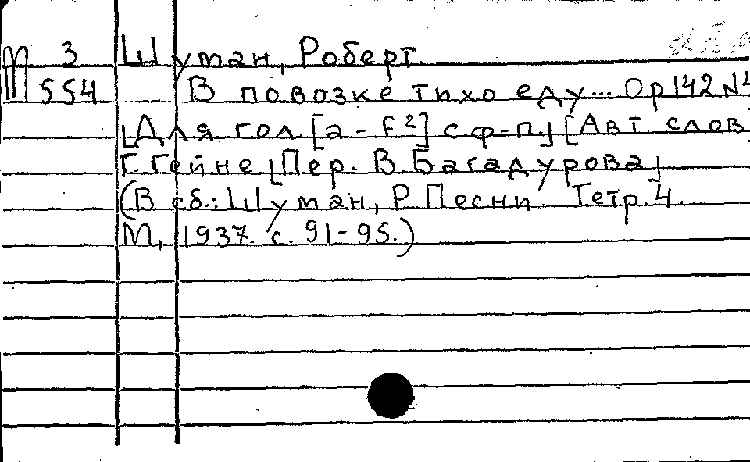 m 3 Шуман, Роберт.
554 В повозке тихо еду... Op 142 N4
[Для гол [a - f²] с ф-п.] [Авт слов
Г. Гейне [Пер. В. Багадурова]
(В сб.: Шуман, Р. Песни. Тетр. 4.
М., 1937. с. 91-95.)